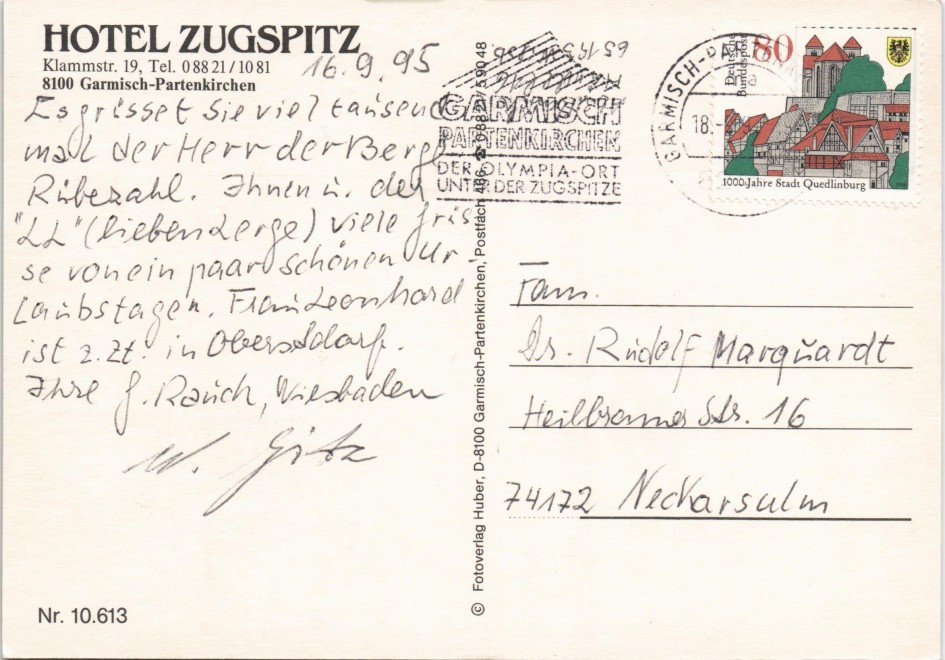 HOTEL ZUGSPITZ
Klammstr. 19, Tel. 0 88 21 / 10 81
8100 Garmisch-Partenkirchen
16.9.95
Es grüsset Sie viel tausend
mal der Herr der Berge
Rübezahl. Ihnen u. den
"LL" (lieben Zerge) viele Grüs-
se von ein paar schönen Ur-
laubstagen. Frau Leonhard
ist z.Zt. in Oberstdorf.
Ihre G. Rauch, Wiesbaden
W. Götz
Nr. 10.613
© Fotoverlag Huber, D-8100 Garmisch-Partenkirchen, Postfach 466, ☎ 08821/5 90 48
GARMISCH
PARTENKIRCHEN
DER OLYMPIA-ORT
UNTER DER ZUGSPITZE
GARMISCH-PAR
18.-
80
Deutsche
Bundespost
1000 Jahre Stadt Quedlinburg
Fam.
Dr. Rudolf Marquardt
Heilbronner Str. 16
74172 Neckarsulm